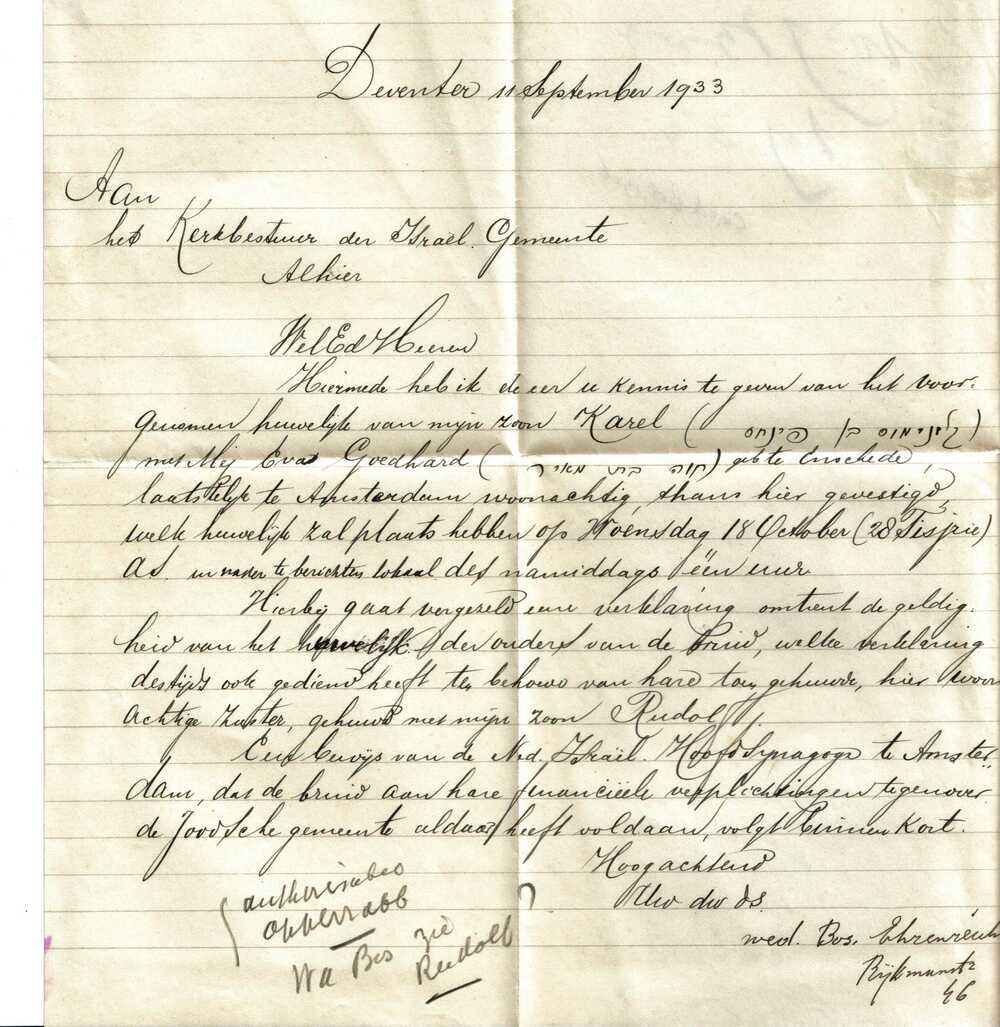 Deventer 11 September 1933
Aan
het Kerkbestuur der Israël. Gemeente
Alhier
WelEdHeeren
Hiermede heb ik de eer u kennis te geven van het voor-
genomen huwelijk van mijn zoon Karel (קלונימוס בן פינחס)
met Mej Eva Goedhard (חוה בת מאיר) geb te Enschede,
laatstelijk te Amsterdam woonachtig, thans hier gevestigd,
welk huwelijk zal plaats hebben op Woensdag 18 October (28 Tisjrie)
as. in nader te berichten lokaal des namiddags één uur.
Hierbij gaat vergezeld eene verklaring omtrent de geldig-
heid van het huwelijk der ouders van de bruid, welke verklaring
destijds ook gediend heeft ten behowe van hare toen gehuwde, hier woon
achtige zuster, gehuwd met mijn zoon Rudolf.
Een bewijs van de Ned. Israël. Hoofdsynagoge te Amster-
dam, dat de bruid aan hare financiëele verplichtingen tegenover
de Joodsche gemeente aldaar heeft voldaan, volgt binnen kort.
Hoogachtend
Uw dw ds.
wed. Bos. Ehrenreich
Rijkmanstr
46
Opperrabb
Wd Bos zie
Rudolf
?